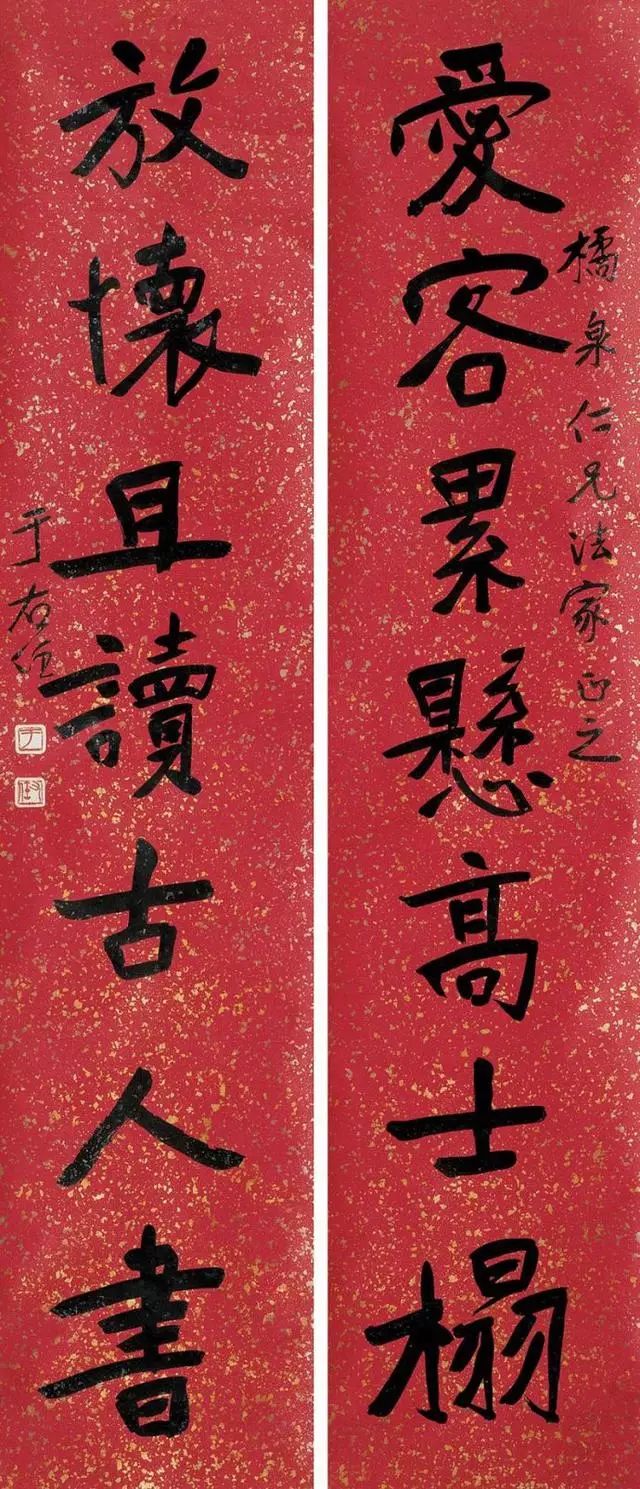 橘泉仁兄法家正之
愛客累懸高士榻
放懷且讀古人書
于右任